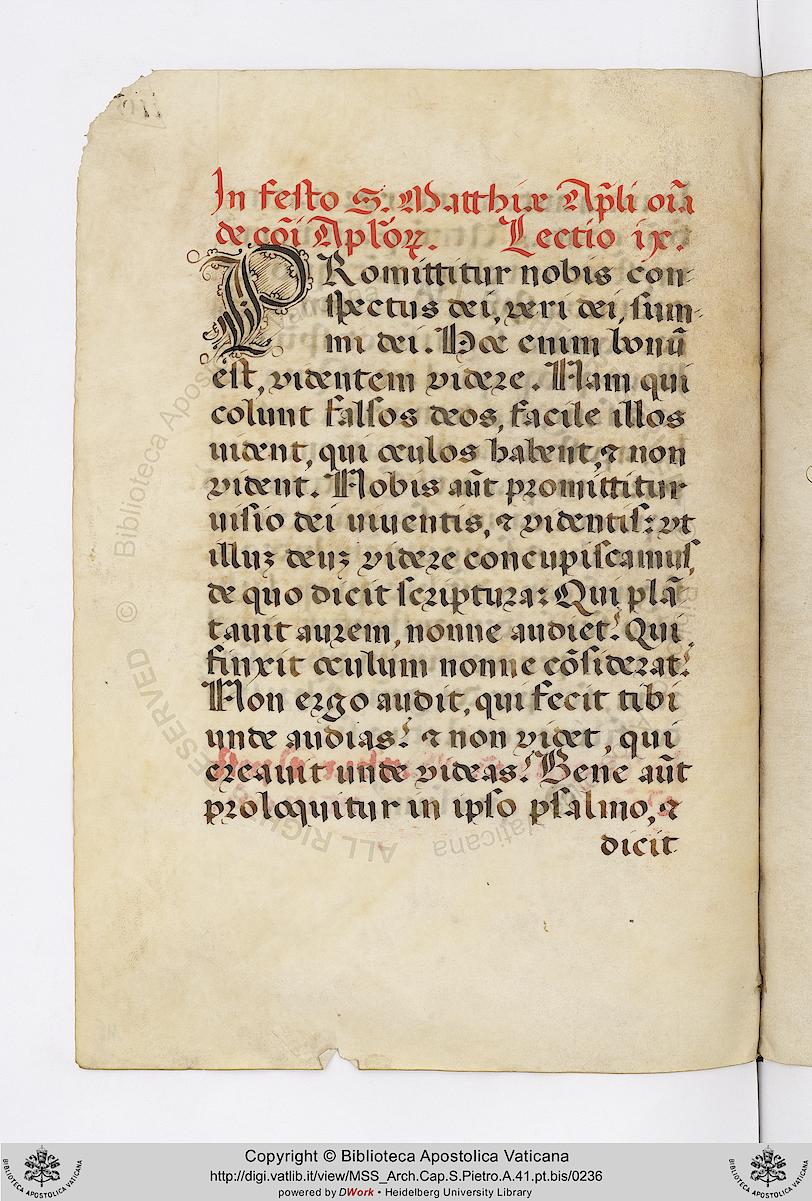 In festo S. Matthiæ Ap̃li oĩa
de cõi Apl̃oꝝ. Lectio ix.
PRomittitur nobis con-
spectus dei, veri dei, sum-
mi dei. Hoc enim bonũ
est, videntem videre. Nam qui
colunt falsos deos, facile illos
uident, qui oculos habent, & non
vident. Nobis aũt promittitur
uisio dei uiuentis, & videntis: vt
illuꝫ deuꝫ videre concupiscamus,
de quo dicit scriptura: Qui plã
tauit aurem, nonne audiet? Qui
finxit oculum nonne cõsiderat?
Non ergo audit, qui fecit tibi
unde audias? & non videt, qui
creauit unde videas? Bene aũt
proloquitur in ipso psalmo, &
dicit
Copyright © Biblioteca Apostolica Vaticana
http://digi.vatlib.it/view/MSS_Arch.Cap.S.Pietro.A.41.pt.bis/0236
powered by DWork • Heidelberg University Library